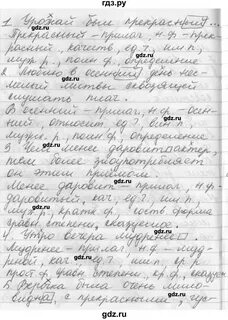 1. Урожай был прекрасный...
Прекрасный – прилаг., н.ф. – прек-
расный, качеств., ед.ч., им.п.,
муж.р., полн.ф., определение
2. Люблю в осенний день нес-
лышный листвы скворящей
слушать плач.
В осенний – прилаг., н.ф. – осен-
ний, относит., ед.ч., вин.п.,
муж.р., полн.ф., определение.
3. Чем менее даровит актер,
тем более злоупотребляет
он этим приёмом.
Менее даровит – прилаг., н.ф. –
даровитый, кач., ед.ч., им.п.,
муж.р., кратк.ф., сост. форма
сравн. степени, сказуемое.
4. Утро вечера мудренее.
Мудренее – прилаг., н.ф. – муд-
рёный, кач., ед.ч., им.п., ср.р.
прост.ф. сравн. степени, ср., сказуем.
5. была очень мило-
видна, с прекрасными, гус-
gdz.ru